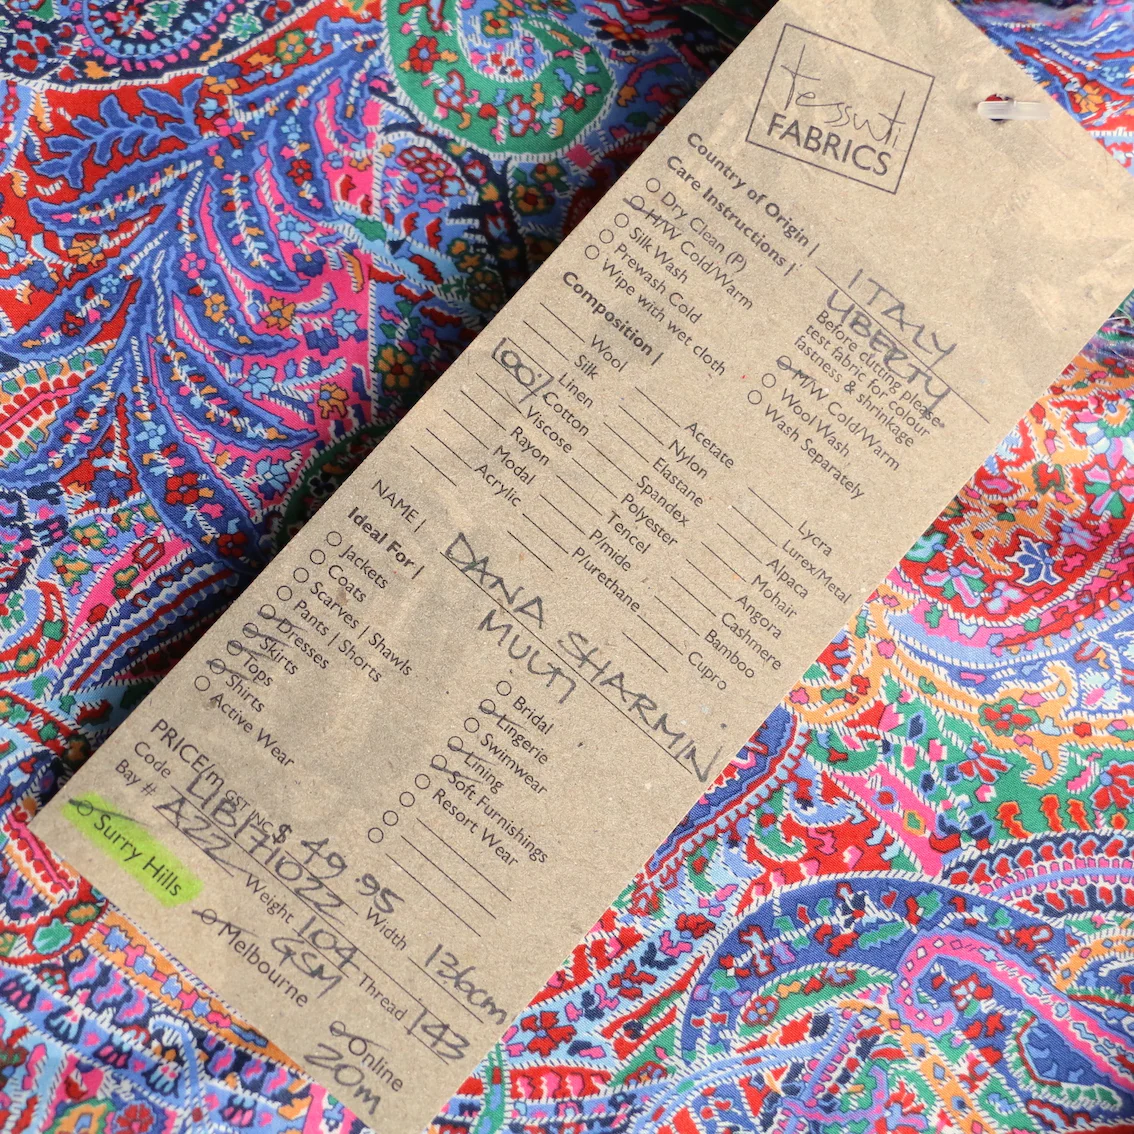 tessuti
FABRICS
Country of Origin | ITALY
Care Instructions | LIBERTY
Dry Clean (P)
H/W Cold/Warm
Silk Wash
Prewash Cold
Wipe with wet cloth
Before cutting please
test fabric for colour
fastness & shrinkage
M/W Cold/Warm
Wool Wash
Wash Separately
Composition |
Wool
Silk
Linen
100% Cotton
Viscose
Rayon
Modal
Acrylic
Acetate
Nylon
Elastane
Spandex
Polyester
Tencel
P/mide
P/urethane
Lycra
Lurex/Metal
Alpaca
Mohair
Angora
Cashmere
Bamboo
Cupro
NAME | DANA SHARMIN
MULTI
Ideal For |
Jackets
Coats
Scarves | Shawls
Pants | Shorts
Dresses
Skirts
Tops
Shirts
Active Wear
Bridal
Lingerie
Swimwear
Lining
Soft Furnishings
Resort Wear
PRICE/m GST INC $ 49.95
Code LIB171022 Width 136cm
Bay # A22 Weight 104 GSM Thread 143
Surry Hills
Melbourne
Online
20m